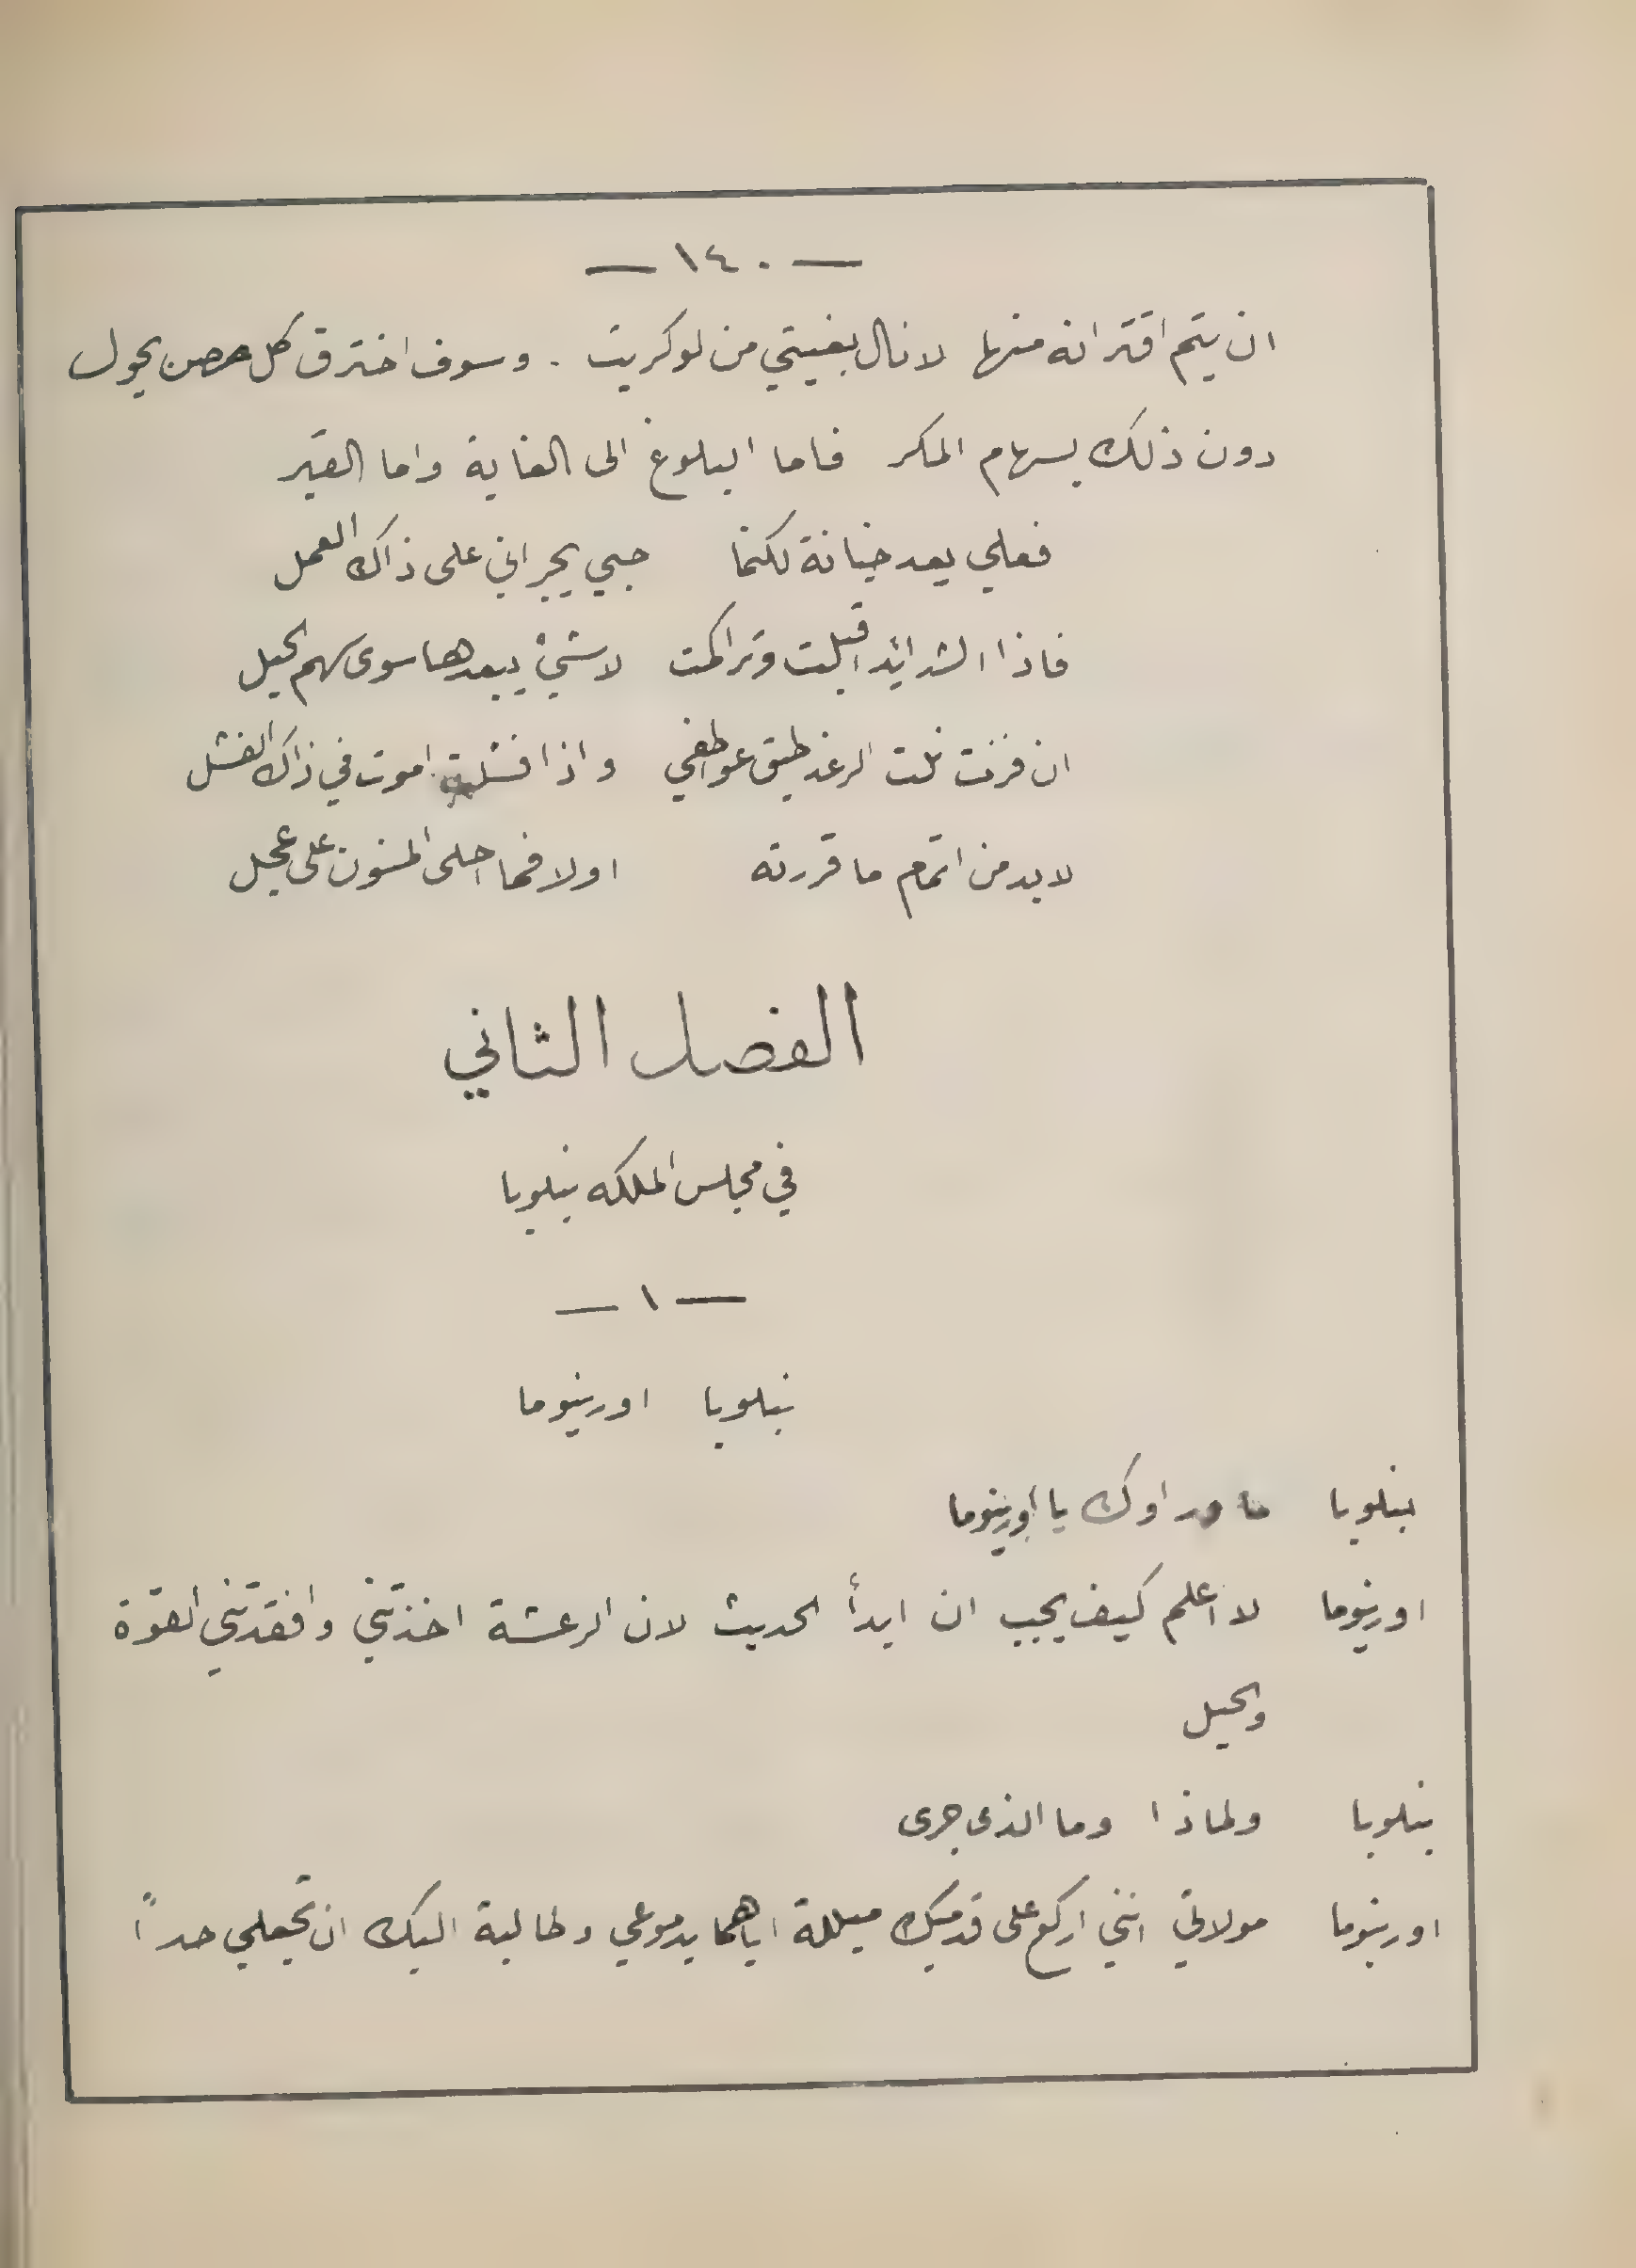 — ١٤٠ —
ان يتم اقترانه منها لانال بغيتي من لوكريت . وسوف اخترق كل حصن يحول
دون ذلك بسهام المكر فاما البلوغ الى الغاية واما القبر
فعلي يعد خيانة لكنما حبي يجبراني على ذاك العمل
فاذا الشدائد اقبلت وتراكمت لاشيْ يبعدها سوى سهم الحيل
ان فزت نلت الرغد طبق عواطفي واذا فشلت اموت في ذاك الفشل
لا بد من اتمام ما قررته اولا فما احلى المنون على عجل
الفصل الثاني
في مجلس الملكه بنلوبا
— ١ —
بنلوبا اورينوما
بنلوبا ما وراوك يا اورينوما
اورينوما لا اعلم كيف يجب ان ابدأ الحديث لان الرعشة اخذتني وافقدتني القوة
والحيل
بنلوبا ولماذا وما الذى جرى
اورينوما مولاتي انني اركع على قدميك مبللة اياهما بدموعي وطالبة اليك ان تجعلي حداً